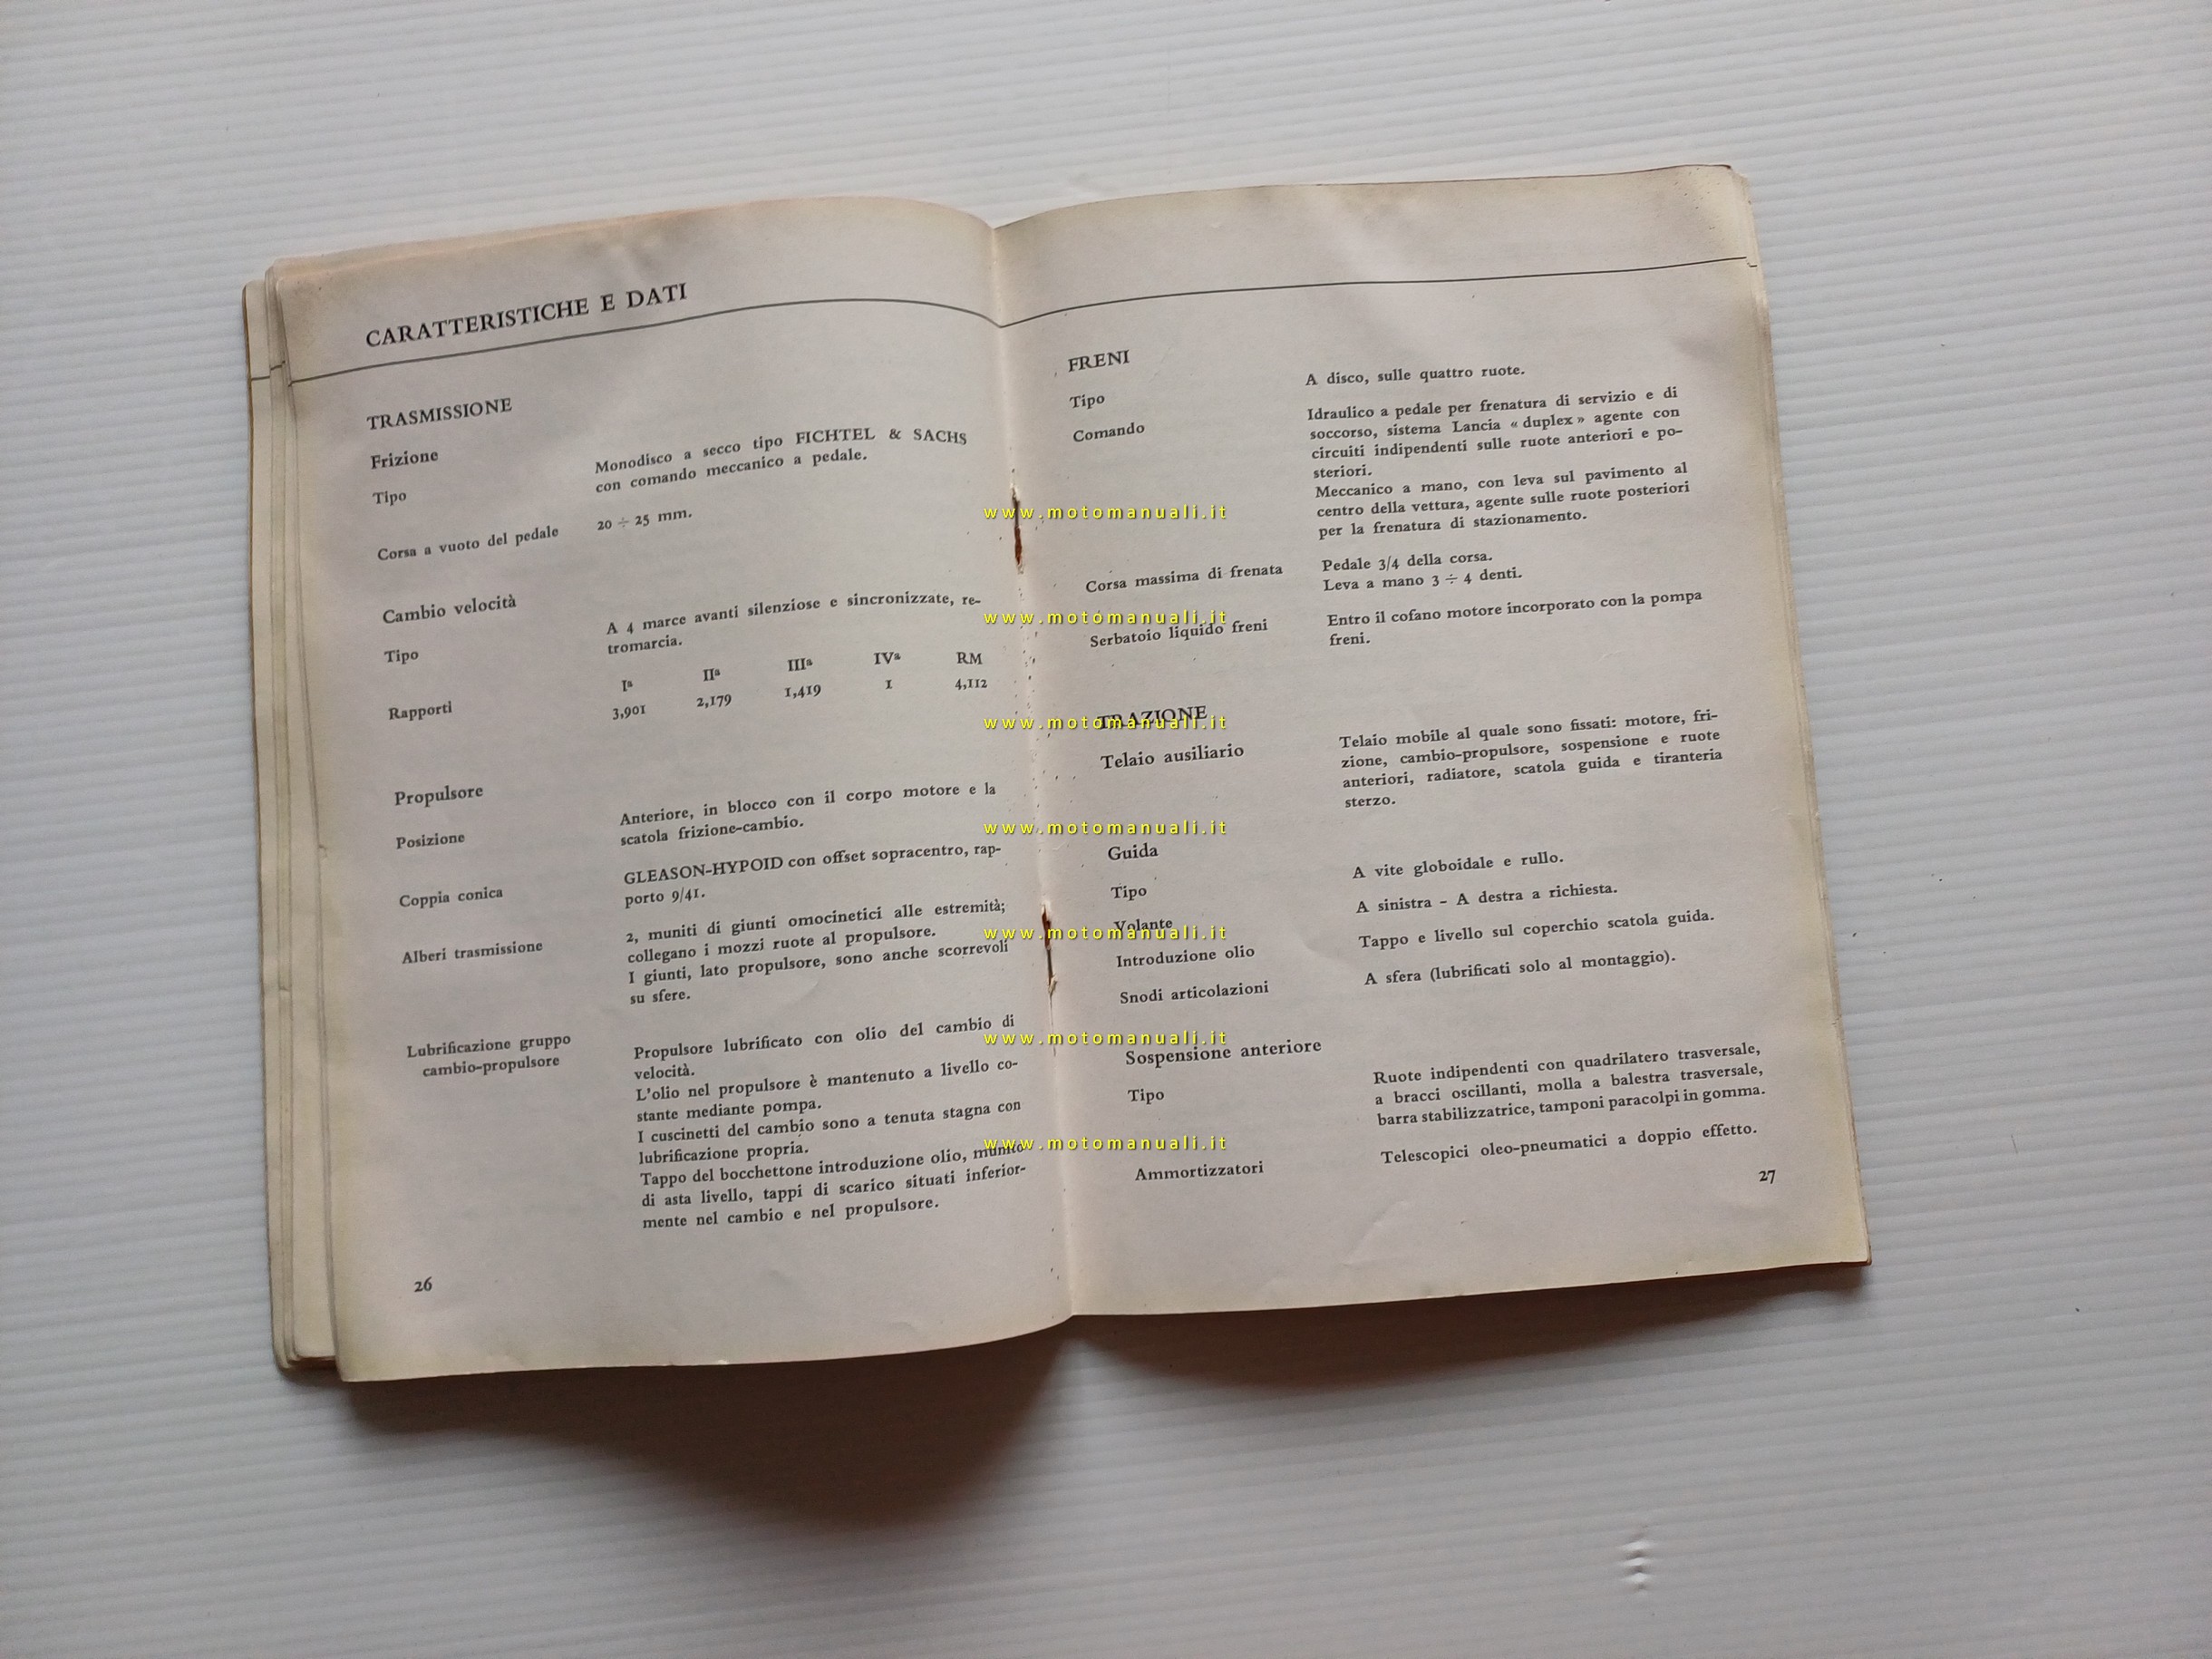 CARATTERISTICHE E DATI
TRASMISSIONE
Frizione
Tipo
Monodisco a secco tipo FICHTEL & SACHS
con comando meccanico a pedale.
Corsa a vuoto del pedale
20 ÷ 25 mm.
Cambio velocità
Tipo
A 4 marce avanti silenziose e sincronizzate, re-
tromarcia.
Rapporti
Iª IIª IIIª IVª RM
3,901 2,179 1,419 1 4,112
Propulsore
Posizione
Anteriore, in blocco con il corpo motore e la
scatola frizione-cambio.
Coppia conica
GLEASON-HYPOID con offset sopracentro, rap-
porto 9/41.
Alberi trasmissione
2, muniti di giunti omocinetici alle estremità;
collegano i mozzi ruote al propulsore.
I giunti, lato propulsore, sono anche scorrevoli
su sfere.
Lubrificazione gruppo
cambio-propulsore
Propulsore lubrificato con olio del cambio di
velocità.
L'olio nel propulsore è mantenuto a livello co-
stante mediante pompa.
I cuscinetti del cambio sono a tenuta stagna con
lubrificazione propria.
Tappo del bocchettone introduzione olio, munito
di asta livello, tappi di scarico situati inferior-
mente nel cambio e nel propulsore.
26
FRENI
Tipo
A disco, sulle quattro ruote.
Comando
Idraulico a pedale per frenatura di servizio e di
soccorso, sistema Lancia « duplex » agente con
circuiti indipendenti sulle ruote anteriori e po-
steriori.
Meccanico a mano, con leva sul pavimento al
centro della vettura, agente sulle ruote posteriori
per la frenatura di stazionamento.
Corsa massima di frenata
Pedale 3/4 della corsa.
Leva a mano 3 ÷ 4 denti.
Serbatoio liquido freni
Entro il cofano motore incorporato con la pompa
freni.
TRAZIONE
Telaio ausiliario
Telaio mobile al quale sono fissati: motore, fri-
zione, cambio-propulsore, sospensione e ruote
anteriori, radiatore, scatola guida e tiranteria
sterzo.
Guida
Tipo
A vite globoidale e rullo.
Volante
A sinistra - A destra a richiesta.
Introduzione olio
Tappo e livello sul coperchio scatola guida.
Snodi articolazioni
A sfera (lubrificati solo al montaggio).
Sospensione anteriore
Tipo
Ruote indipendenti con quadrilatero trasversale,
a bracci oscillanti, molla a balestra trasversale,
barra stabilizzatrice, tamponi paracolpi in gomma.
Ammortizzatori
Telescopici oleo-pneumatici a doppio effetto.
27
www.motomanuali.it
www.motomanuali.it
www.motomanuali.it
www.motomanuali.it
www.motomanuali.it
www.motomanuali.it
www.motomanuali.it